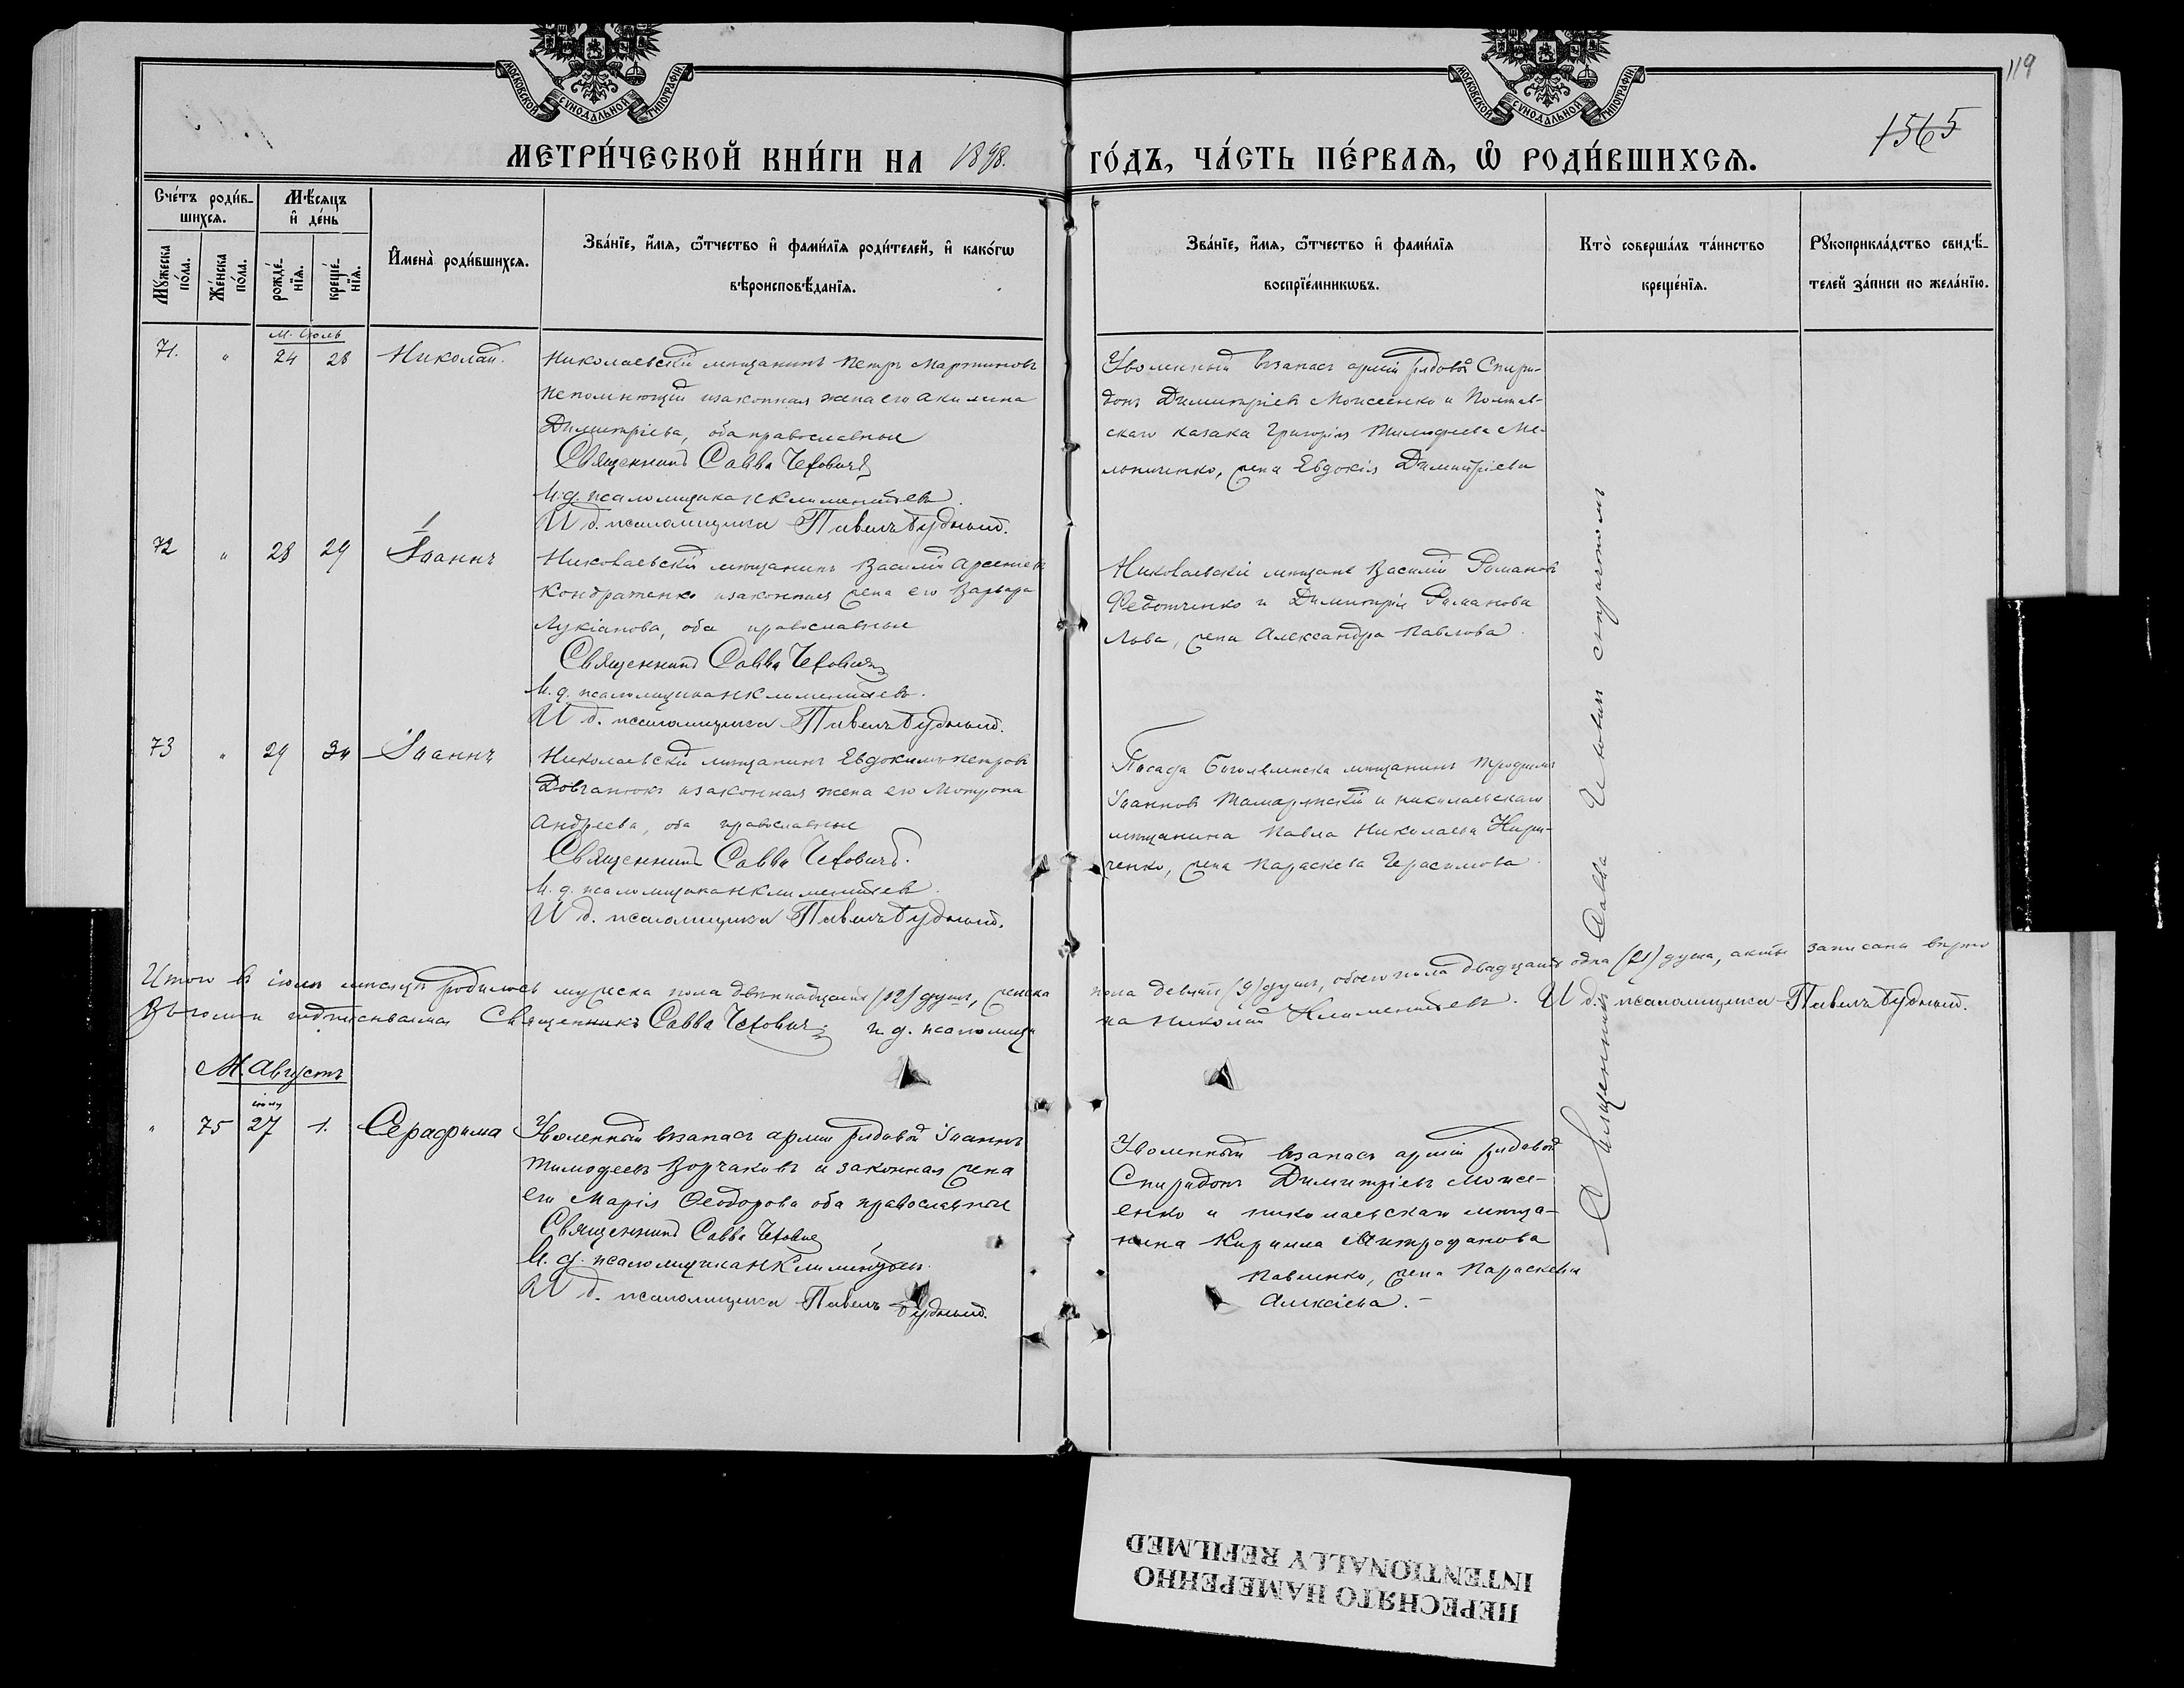 МОСКОВСКОЙ СѴНОДАЛЬНОЙ ТИПОГРАФІИ
МОСКОВСКОЙ СѴНОДАЛЬНОЙ ТИПОГРАФІИ
119
1565
МЕТРИ́ЧЕСКОЙ КНИ́ГИ НА 1898. ГО́ДЪ, ЧА́СТЬ ПЕ́РВАЯ, Ѡ РОДИ́ВШИХСЯ.
Сче́тъ роди́вшихся.
Мꙋ́жеска по́ла.
Же́нска по́ла.
Мѣ́сяцъ и де́нь
рожде́нїя.
креще́нїя.
И҆мена̀ роди́вшихся.
Зва́нїе, и҆́мя, ѻ҆́тчество и҆ фами́лїя роди́телей, и҆ како́гѡ
вѣроисповѣ́данїя.
Зва́нїе, и҆́мя, ѻ҆́тчество и҆ фами́лїя
воспрїе́мникѡвъ.
Кто̀ соверша́лъ та́инство
креще́нїя.
Рꙋкоприкла́дство свидѣ́-
телей за́писи по жела́нїю.
М. Іюль
71. " 24 28 Николай.
Николаевскій мѣщанинъ Петръ Мартиновъ
Непомнющій и законная жена его Акилина
Димитріева, оба православные
Священникъ Савва Чехович
И. д. псаломщика Н Климентьевъ.
И д. псаломщика Павелъ Будный.
Уволенный въ запасъ арміи рядовой Спири-
донъ Димитріевъ Моисеенко и Полтав-
скаго казака Григорія Тимофеева Ме-
льниченко, жена Евдокія Димитріева
72 " 28 29 Іоаннъ
Николаевскій мѣщанинъ Василій Арсеніевъ
Кондратенко и законная жена его Варвара
Лукіанова, оба православные
Священникъ Савва Чехович
И. д. псаломщика Н Климентьевъ.
И д. псаломщика Павелъ Будный.
Николаевскіе мѣщане Василій Романовъ
Федотченко и Димитрія Романова
Льва, жена Александра Павлова.
73 " 29 30 Іоаннъ
Николаевскій мѣщанинъ Евдокимъ Петровъ
Довганюкъ и законная жена его Мотрона
Андреева, оба православные
Священникъ Савва Чехович.
И. д. псаломщика Н Климентьевъ.
И д. псаломщика Павелъ Будный.
Посада Богоявленска мѣщанинъ Трофимъ
Іоанновъ и николаевскаго
мѣщанина Павла Николаева Кири-
ченко, жена Параскева Герасимова.
Священникъ Савва Чехович съ причтомъ
Итого въ іюлѣ мѣсяцѣ родилось мужеска пола двѣнадцать (12) душъ, женска пола девять (9) душъ, обоего пола двадцать одна (21) душа, акты записаны вѣрно
В чемъ и подписываемся Священникъ Савва Чехович. и д. псаломщика Николай Климентьевъ. И д. псаломщика Павелъ Будный.
М. Августъ
іюля
" 75 27 1. Серафима
Уволенный въ запасъ арміи рядовой Іоаннъ
Тимофеевъ Ворчаковъ и законная жена
его Марія Ѳеодорова оба православные
Священникъ Савва Чехович
И. д. псаломщика Н Климентьевъ.
И д. псаломщика Павелъ Будный.
Уволенный въ запасъ арміи рядовой
Спиридонъ Димитріевъ Моисе-
енко и николаевскаго мѣща-
нина Кирилла Митрофанова
Павленко, жена Параскева
Алексіева.-
ПЕРЕСНЯТО НАМЕРЕННО
INTENTIONALLY REFILMED